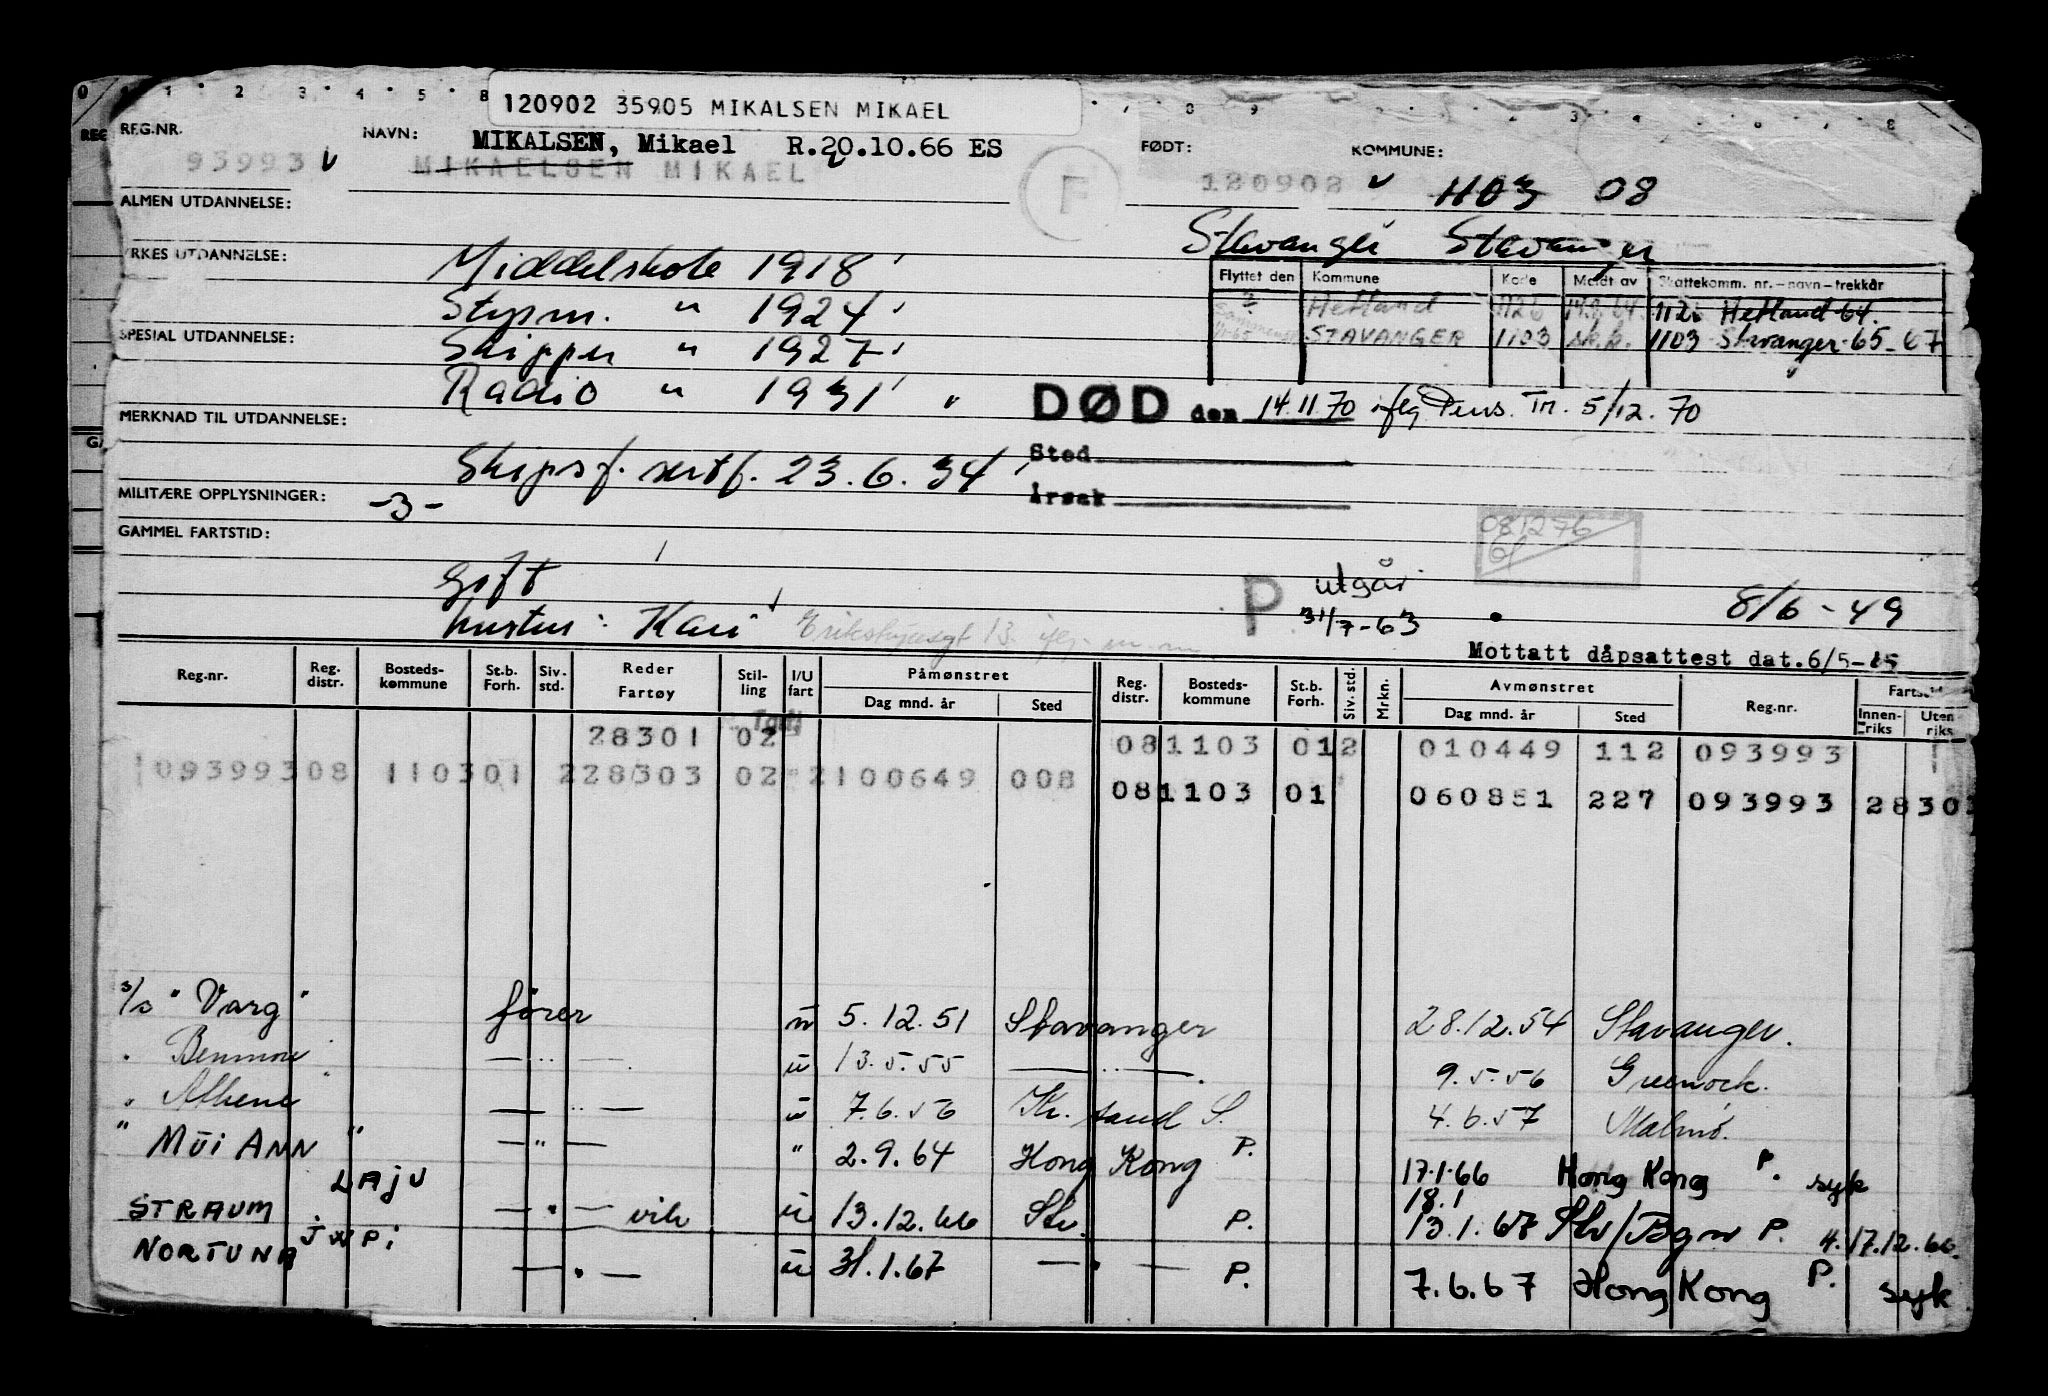 120902 35905 MIKALSEN MIKAEL
REG.NR. NAVN: MIKALSEN, Mikael R.20.10.66 ES FØDT: KOMMUNE:
93993 v MIKAELSEN MIKAEL F 120902 v 1103 08
ALMEN UTDANNELSE: Stavanger Stavanger
YRKES UTDANNELSE: Middelskole 1918
Flyttet den Kommune Kode Meldt av Skattekomm. nr.-navn-trekkår
Styrm. " 1924
? Hetland 1126 14.2.64 1126 Hetland 64.
SPESIAL UTDANNELSE: Skipper " 1927
STAVANGER 1103 sk.k. 1103 Stavanger 65-67
Radio " 1931 "
DØD den 14.11.70 iflg Pens. Tr. 5/12.70
MERKNAD TIL UTDANNELSE:
Skipsf. sertf. 23.6.34
Sted
Årsak
MILITÆRE OPPLYSNINGER: -3-
081276
GAMMEL FARTSTID:
Gift
P utgår
31/7-63
8/6-49
hustru: Kari
Mottatt dåpsattest dat. 6/5-15
Reg.nr. Reg. distr. Bostedskommune St.b. Forh. Siv. std. Reder Fartøy Stilling I/U fart Påmønstret Dag mnd. år Sted Reg. distr. Bostedskommune St.b. Forh. Siv. std. Mrkn. Avmønstret Dag mnd. år Sted Reg.nr. Innenriks Utenriks
28301 02 081103 012 010449 112 093993
109399308 110301 228303 02 2100649 008
081103 01 060851 227 093993 28301
s/s "Varg" fører u 5.12.51 Stavanger 28.12.54 Stavanger.
" Benmore — " — u 13.5.55 — " — 9.5.56 Greenock.
" Athene " — " — u 7.6.56 Kr. sand S. 4.6.57 Malmö.
" MUI ANN " — " — " 2.9.64 Hong Kong P. 17.1.66 Hong Kong P. syk
LAJU 18.1
STRAUM — " — vik u 13.12.66 Stv. P. 13.1.67 Stv/Bgn P. 4.17.12.66.
JXPI
NORTUNA — " — u 31.1.67 — " — P. 7.6.67 Hong Kong P. syk